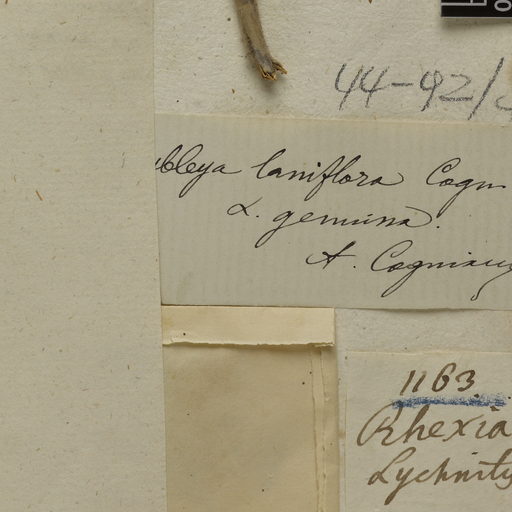 44-92/
ubleya laniflora Cogn
α. genuina.
A. Cogniaux
1163
Rhexia
Lychnity